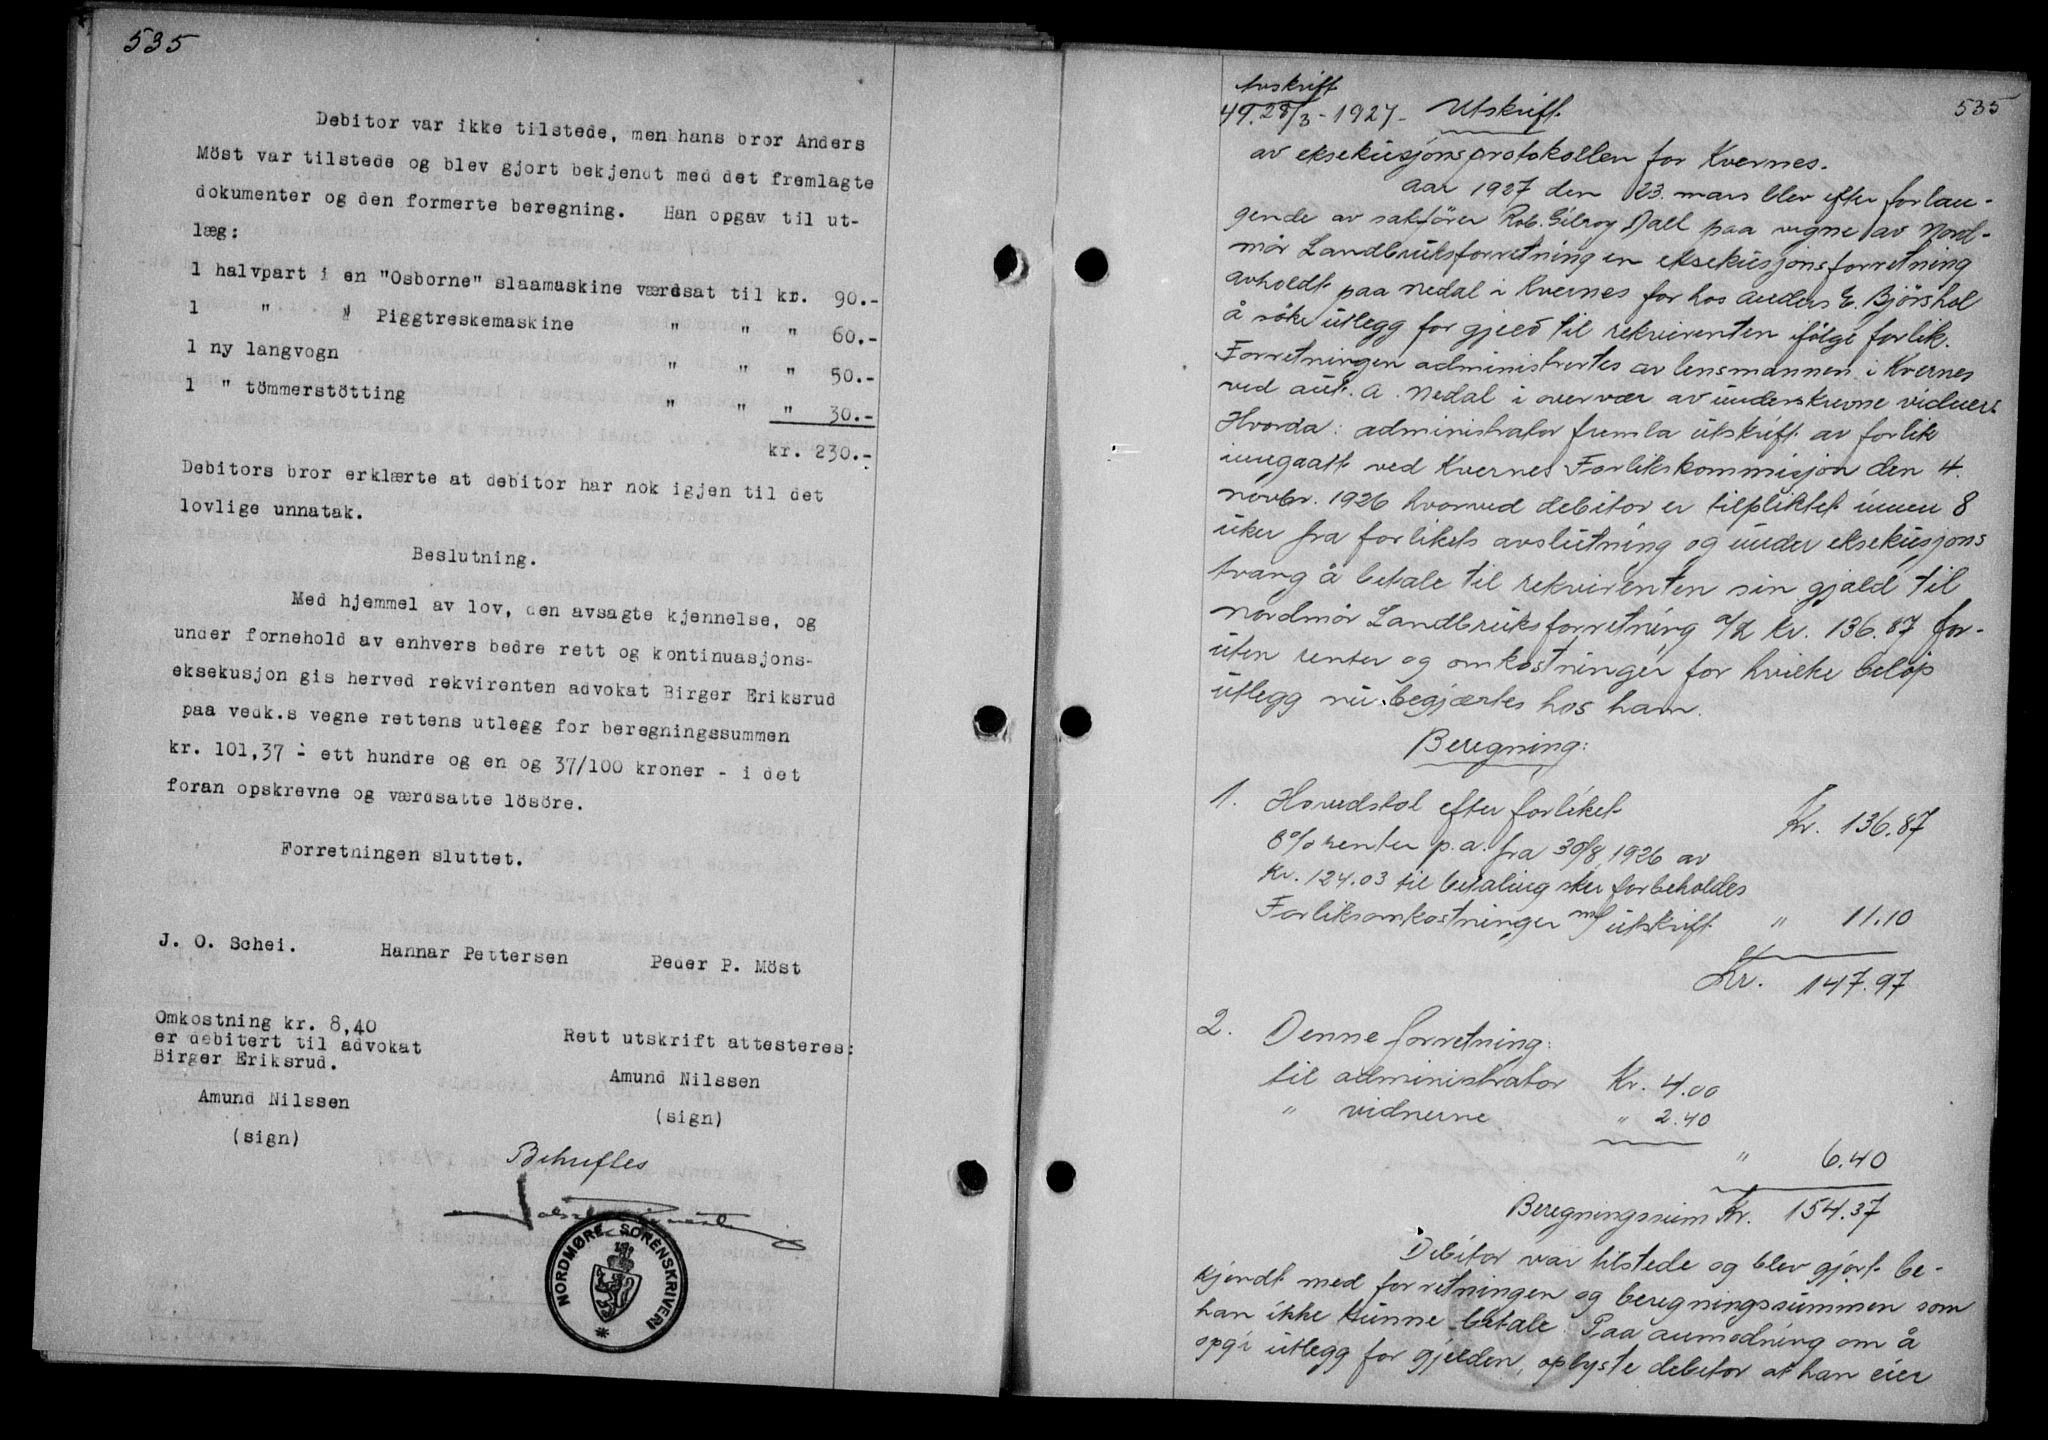 535
Debitor var ikke tilstede, men hans bror Anders
Möst var tilstede og blev gjort bekjendt med det fremlagte
dokumenter og den formerte beregning. Han opgav til ut-
læg:
1 halvpart i en "Osborne" slaamaskine værdsat til kr. 90.-
1 " " Piggtreskemaskine " " " 60.-
1 ny langvogn " " " 50.-
1 " tömmerstötting " " " 30.-
kr. 230.-
Debitors bror erklærte at debitor har nok igjen til det
lovlige unnatak.
Beslutning.
Med hjemmel av lov, den avsagte kjennelse, og
under fornehold av enhvers bedre rett og kontinuasjons-
eksekusjon gis herved rekvirenten advokat Birger Eriksrud
paa vedk.s vegne rettens utlegg for beregningssummen
kr. 101,37 - ett hundre og en og 37/100 kroner - i det
foran opskrevne og værdsatte lösöre.
Forretningen sluttet.
J. O. Schei. Hannar Pettersen Peder P. Möst
Omkostning kr. 8,40
er debitert til advokat
Birger Eriksrud.
Amund Nilssen
(sign)
Rett utskrift attesteres:
Amund Nilssen
(sign)
Bekreftes
NORDMØRE SORENSKRIVERI
535
Avskrift
49. 28/3 - 1927 - Utskrift
av eksekusjonsprotokollen for Kvernes.
Aar 1927 den 23. mars blev efter forlan-
gende av sakförer Rob. Gilroy Dall paa vegne av Nord-
mör Landbruksforretning en eksekusjonsforretning
avholdt paa Nedal i Kvernes for hos Anders E. Bjørshol
å söke utlegg for gjeld til rekvirenten ifölge forlik.
Forretningen administrertes av lensmannen i Kvernes
ved aut. A. Nedal i overvær av underskrevne vidner:
Hvorda: administrator fremla utskrift av forlik
inngaatt ved Kvernes Forlikskommisjon den 4.
novbr. 1926 hvorved debitor er tilpliktet innen 8
uker fra forlikets avslutning og under eksekusjons
tvang å betale til rekvirenten sin gjæld til
Nordmör Landbruksforretning a/L kr. 136.87 for-
uten renter og omkostninger for hvilke belöp
utlegg nu begjærtes hos ham.
Beregning:
1. Hovedstol efter forliket Kr. 136.87
8 % renter p.a. fra 30/8 1926 av
kr. 124.03 til betaling sker forbeholdes
Forliksomkostninger m/ utskrift " 11.10
Kr. 147.97
2. Denne forretning:
til administrator Kr. 4.00
" vidnerne " 2.40
" 6.40
Beregningssum Kr. 154.37
Debitor var tilstede og blev gjort be-
kjendt med forretningen og beregningssummen som
han ikke kunne betale. Paa anmodning om å
opgi utlegg for gjelden, oplyste debitor at han eier